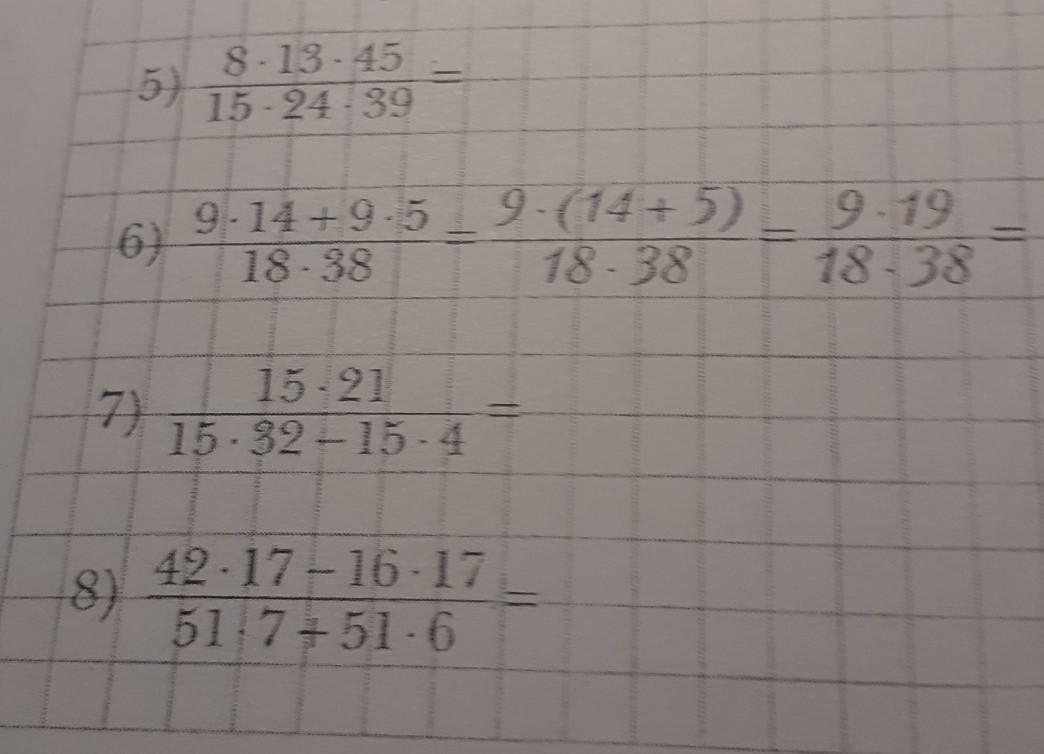 5) (8 · 13 · 45)/(15 · 24 · 39) =
6) (9 · 14 + 9 · 5)/(18 · 38) = (9 · (14 + 5))/(18 · 38) = (9 · 19)/(18 · 38) =
7) (15 · 21)/(15 · 32 – 15 · 4) =
8) (42 · 17 – 16 · 17)/(51 · 7 + 51 · 6) =